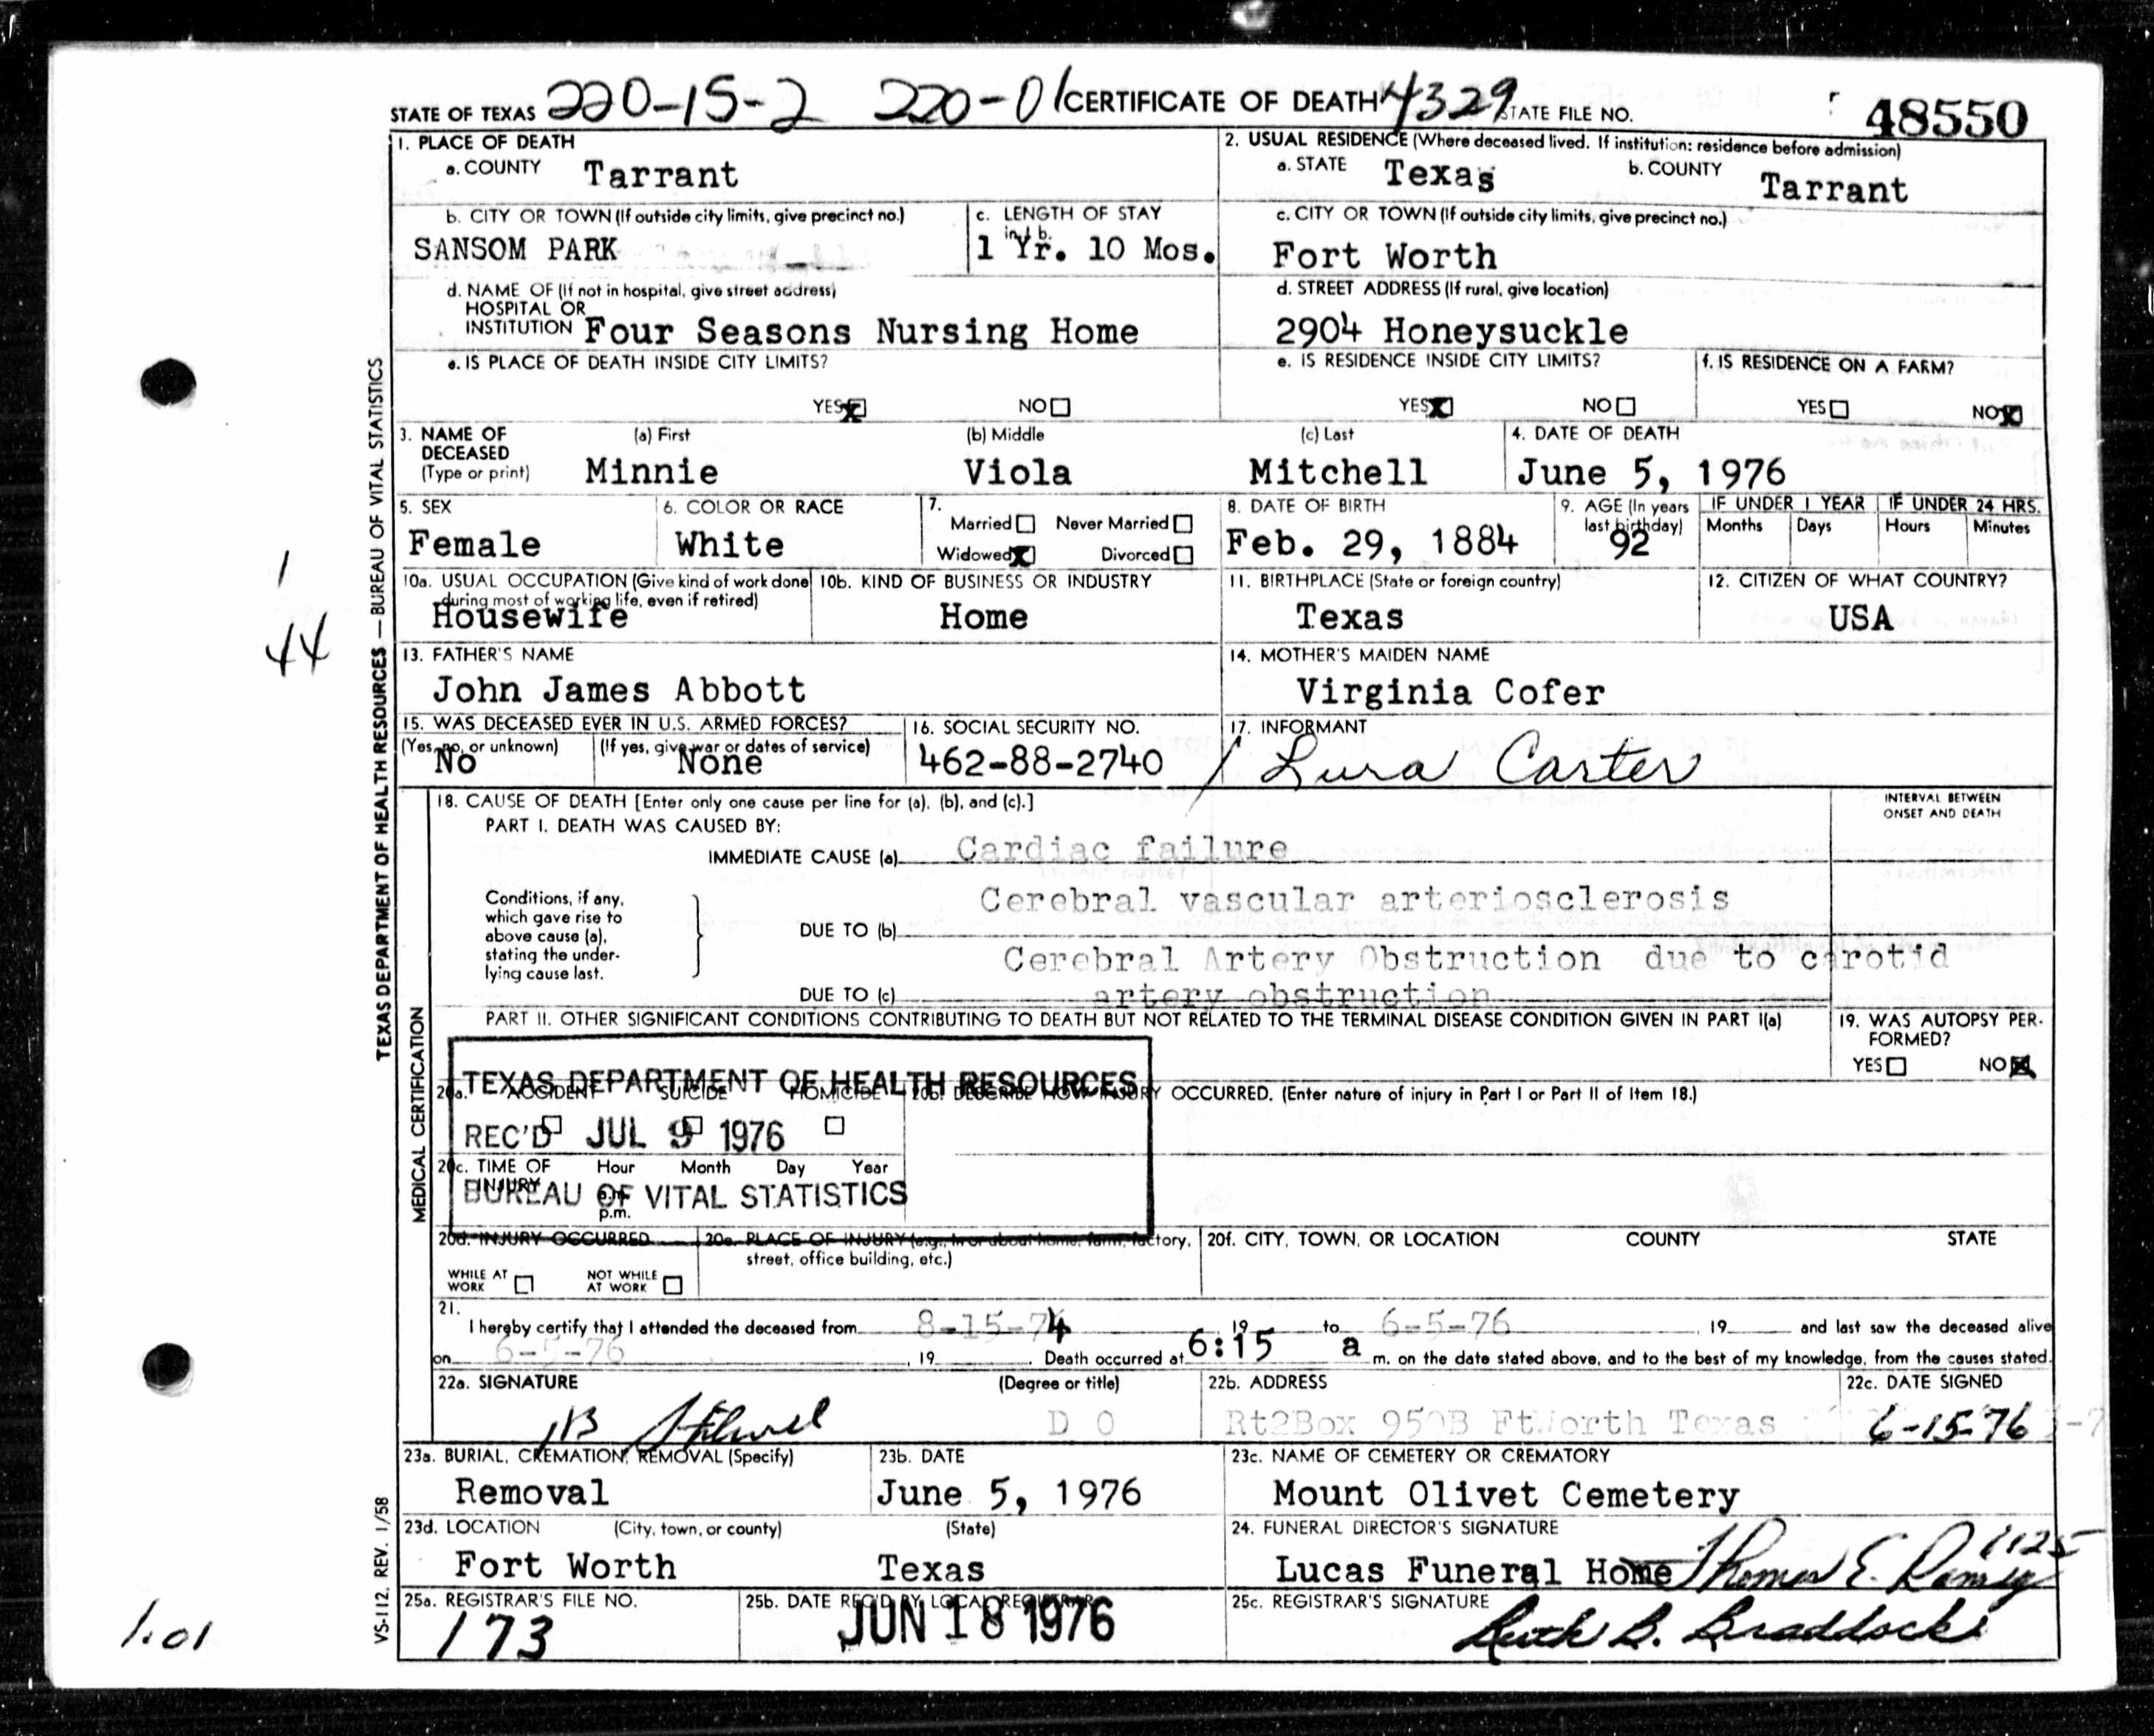 STATE OF TEXAS 220-15-2 220-01 CERTIFICATE OF DEATH 4329 STATE FILE NO. 48550
1. PLACE OF DEATH
a. COUNTY Tarrant
2. USUAL RESIDENCE (Where deceased lived. If institution: residence before admission)
a. STATE Texas b. COUNTY Tarrant
b. CITY OR TOWN (If outside city limits, give precinct no.)
SANSOM PARK
c. LENGTH OF STAY
in 1 b.
1 Yr. 10 Mos.
c. CITY OR TOWN (If outside city limits, give precinct no.)
Fort Worth
d. NAME OF (If not in hospital, give street address)
HOSPITAL OR
INSTITUTION Four Seasons Nursing Home
d. STREET ADDRESS (If rural, give location)
2904 Honeysuckle
e. IS PLACE OF DEATH INSIDE CITY LIMITS?
YES NO
e. IS RESIDENCE INSIDE CITY LIMITS?
YES NO
f. IS RESIDENCE ON A FARM?
YES NO
3. NAME OF
DECEASED
(Type or print)
(a) First (b) Middle (c) Last
Minnie Viola Mitchell
4. DATE OF DEATH
June 5, 1976
5. SEX
Female
6. COLOR OR RACE
White
7.
Married Never Married
Widowed Divorced
8. DATE OF BIRTH
Feb. 29, 1884
9. AGE (In years
last birthday)
92
IF UNDER 1 YEAR IF UNDER 24 HRS.
Months Days Hours Minutes
10a. USUAL OCCUPATION (Give kind of work done
during most of working life, even if retired)
Housewife
10b. KIND OF BUSINESS OR INDUSTRY
Home
11. BIRTHPLACE (State or foreign country)
Texas
12. CITIZEN OF WHAT COUNTRY?
USA
13. FATHER'S NAME
John James Abbott
14. MOTHER'S MAIDEN NAME
Virginia Cofer
15. WAS DECEASED EVER IN U.S. ARMED FORCES?
(Yes, no, or unknown) (If yes, give war or dates of service)
No None
16. SOCIAL SECURITY NO.
462-88-2740
17. INFORMANT
Lura Carter
18. CAUSE OF DEATH [Enter only one cause per line for (a), (b), and (c).]
INTERVAL BETWEEN
ONSET AND DEATH
PART I. DEATH WAS CAUSED BY:
IMMEDIATE CAUSE (a) Cardiac failure
Conditions, if any,
which gave rise to
above cause (a),
stating the under-
lying cause last.
Cerebral vascular arteriosclerosis
DUE TO (b)
Cerebral Artery Obstruction due to carotid
DUE TO (c) artery obstruction
PART II. OTHER SIGNIFICANT CONDITIONS CONTRIBUTING TO DEATH BUT NOT RELATED TO THE TERMINAL DISEASE CONDITION GIVEN IN PART I(a)
19. WAS AUTOPSY PER-
FORMED?
YES NO
TEXAS DEPARTMENT OF HEALTH RESOURCES
REC'D JUL 9 1976
BUREAU OF VITAL STATISTICS
20a. ACCIDENT SUICIDE HOMICIDE
20b. DESCRIBE HOW INJURY OCCURRED. (Enter nature of injury in Part I or Part II of Item 18.)
20c. TIME OF
INJURY
Hour Month Day Year
a.m.
p.m.
20d. INJURY OCCURRED
WHILE AT
WORK
NOT WHILE
AT WORK
20e. PLACE OF INJURY (e.g., in or about home, farm, factory,
street, office building, etc.)
20f. CITY, TOWN, OR LOCATION COUNTY STATE
21.
I hereby certify that I attended the deceased from 8-15-74 19 to 6-5-76, 19 and last saw the deceased alive
on 6-5-76, 19. Death occurred at 6:15 a m. on the date stated above, and to the best of my knowledge, from the causes stated.
22a. SIGNATURE (Degree or title)
D O
22b. ADDRESS
Rt2Box 950B FtWorth Texas
22c. DATE SIGNED
6-15-76
23a. BURIAL, CREMATION, REMOVAL (Specify)
Removal
23b. DATE
June 5, 1976
23c. NAME OF CEMETERY OR CREMATORY
Mount Olivet Cemetery
23d. LOCATION (City, town, or county) (State)
Fort Worth Texas
24. FUNERAL DIRECTOR'S SIGNATURE
Lucas Funeral Home Thomas E. Ramsey 1125
25a. REGISTRAR'S FILE NO.
173
25b. DATE REC'D BY LOCAL REGISTRAR
JUN 18 1976
25c. REGISTRAR'S SIGNATURE
Ruth B. Braddock
TEXAS DEPARTMENT OF HEALTH RESOURCES — BUREAU OF VITAL STATISTICS
MEDICAL CERTIFICATION
VS-112. REV. 1/58
1
44
1.01